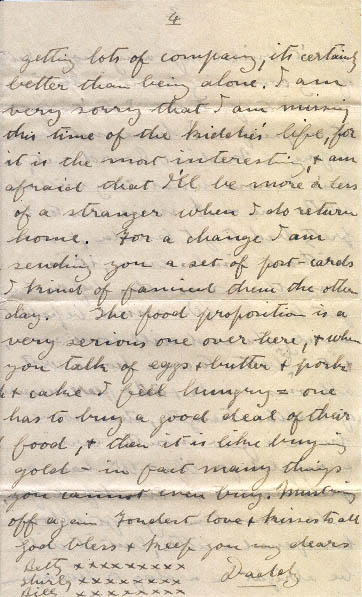 4
getting lots of company, it's certainly
better than being alone. I am
very sorry that I am missing
this time of the kiddies life, for
it is the most interesting, & am
afraid that I'll be more or less
of a stranger when I do return
home. For a change I am
sending you a set of post-cards
I kind of fancied them the other
day. The food proposition is a
very serious one over here, & when
you talk of eggs & butter & pork
& cake I feel hungry = one
has to buy a good deal of their
food, & then it is like buying
gold - in fact many things
you cannot even buy. Must ring
off again Fondest love & kisses to all
God bless & keep you my dears
Betty x x x x x x x x x
Shirley x x x x x x x x x Daddy
Bill x x x x x x x x x